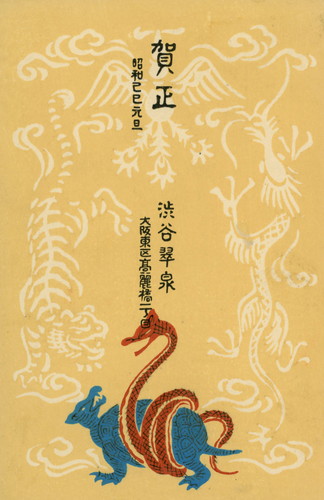 賀正
昭和己巳元旦
渋谷翠泉
大阪東区高麗橋一丁目